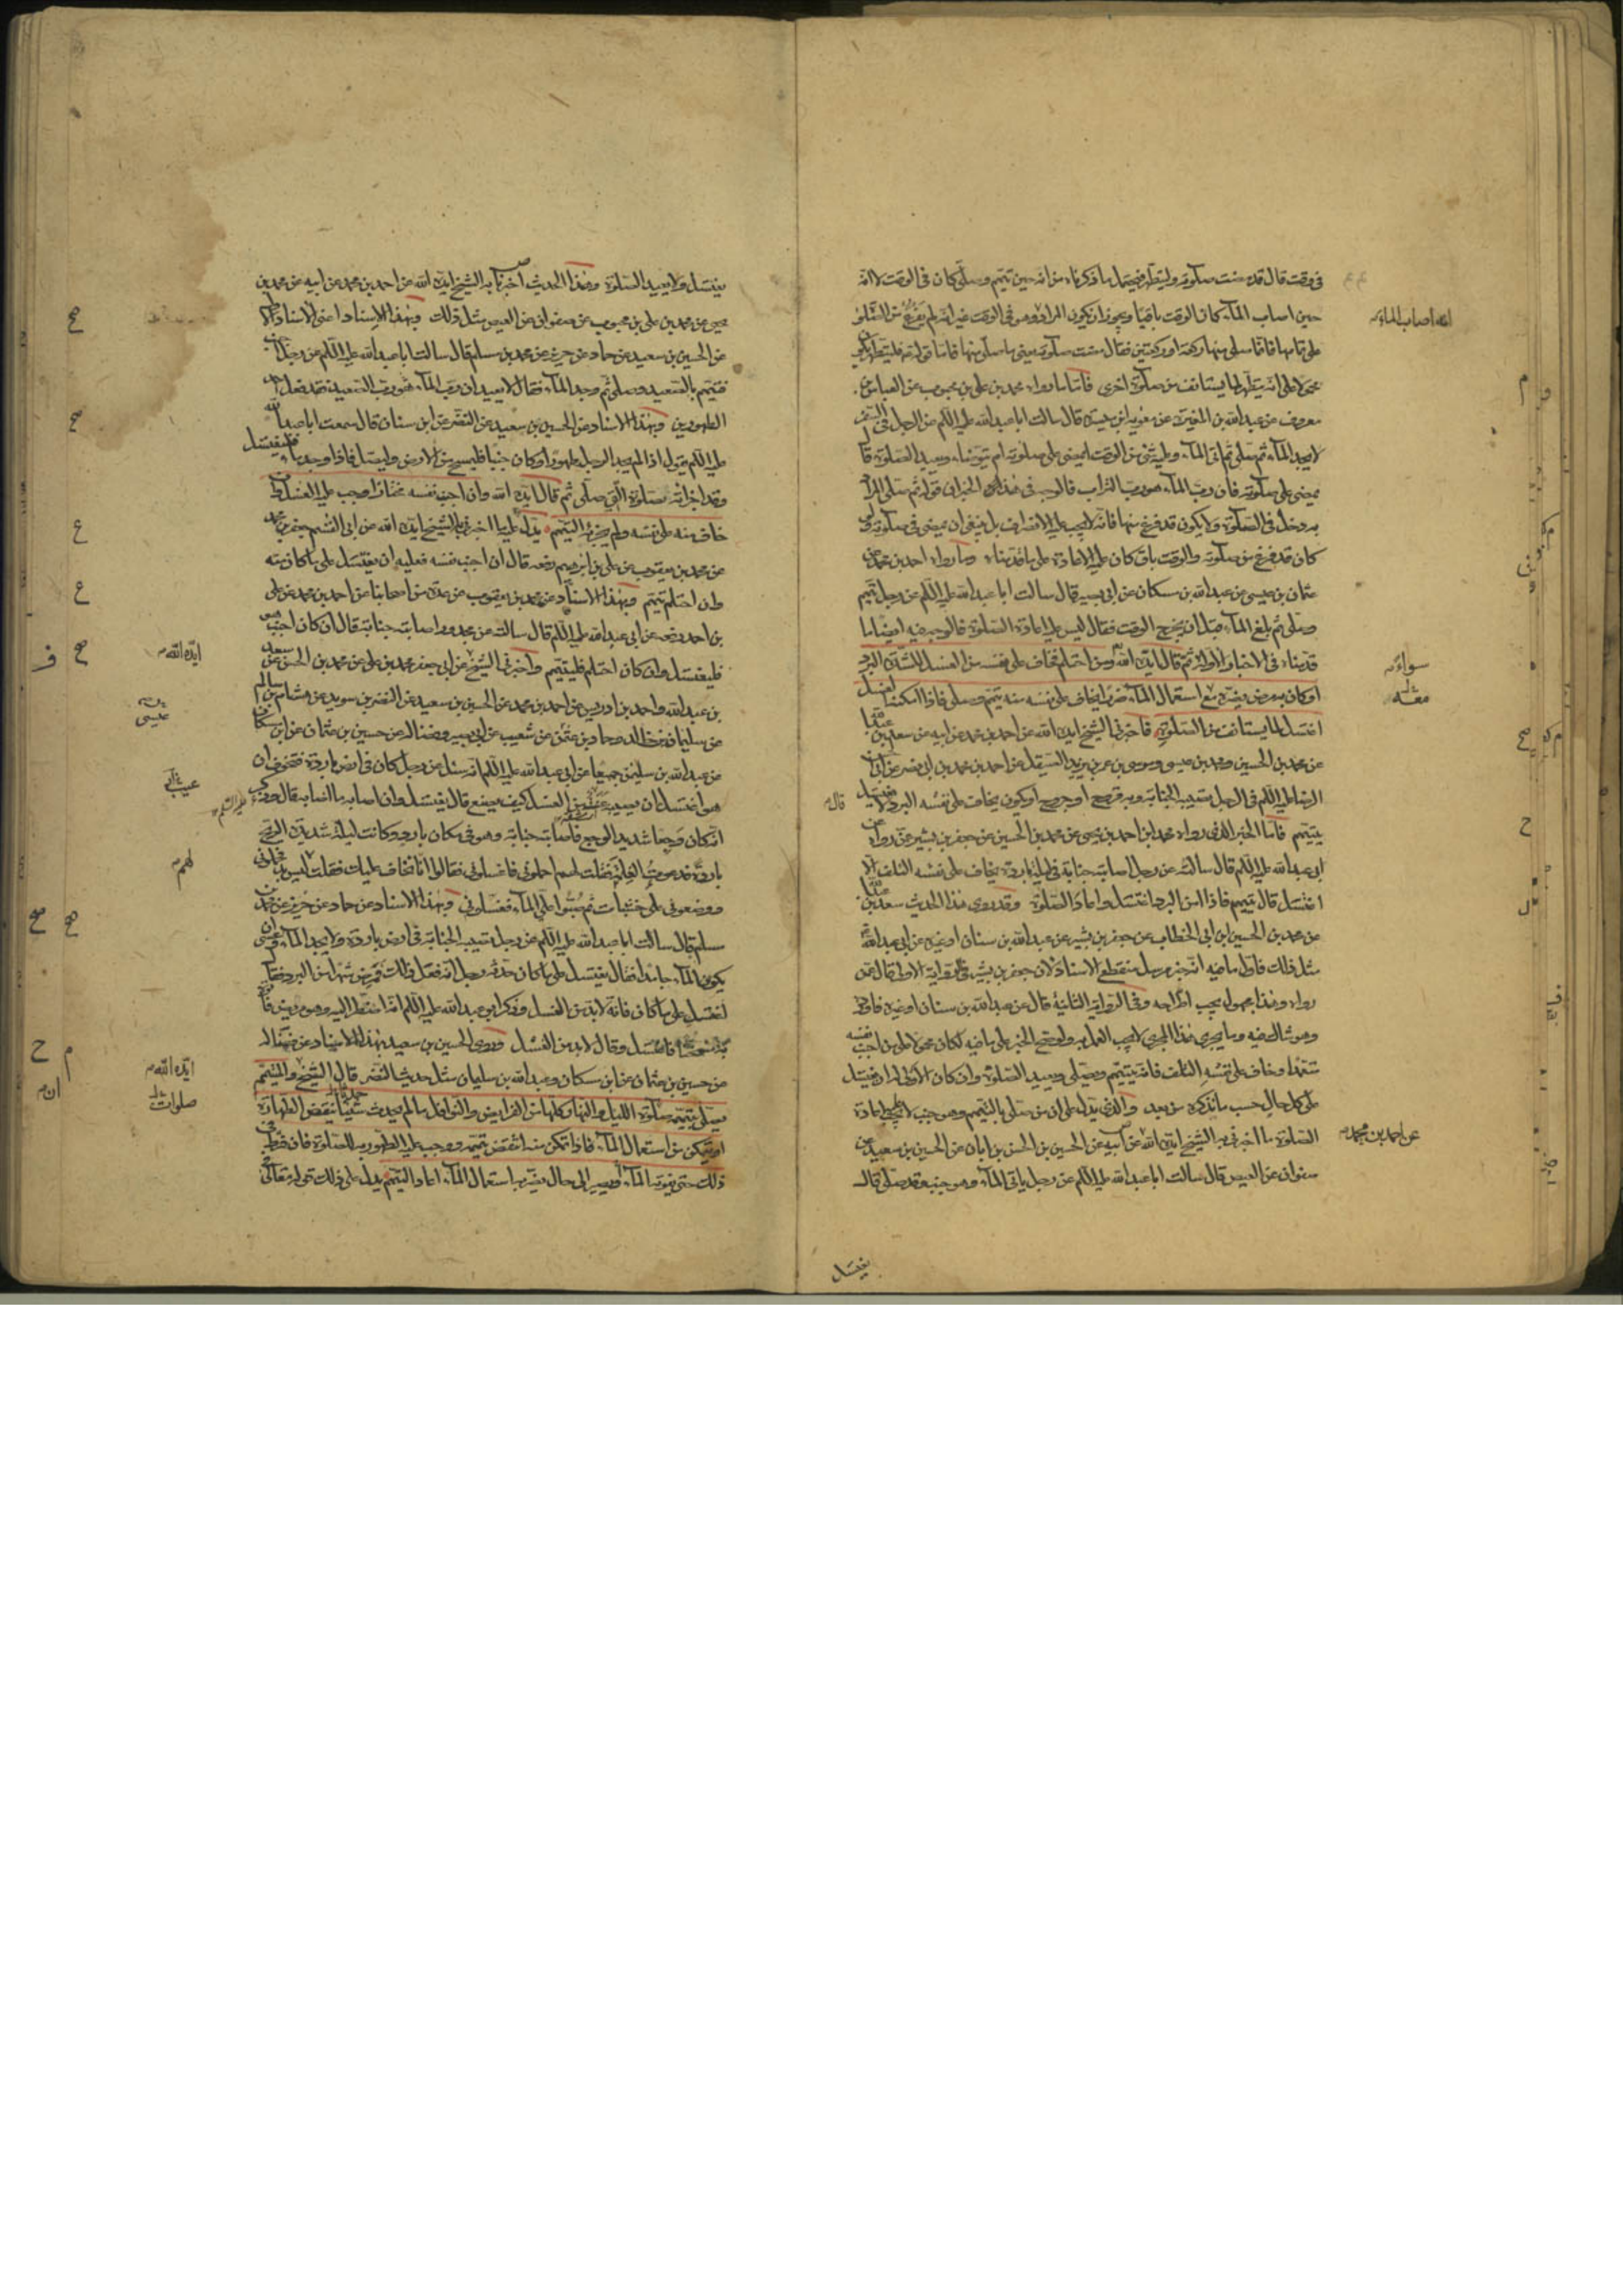 في وقت قال قد مضت صلوته وليتطهر فيحتمل ما ذكرناه من انه حين تيمم وصلى كان في الوقت لا انه
حين اصاب الماء كان الوقت باقيا ويجوز ان يكون المراد وهو في الوقت غير انه لم يفرغ من الصلوة
على تمامها فاذا صلى منها ركعة او ركعتين فقال مضت صلوته يعني ما صلى منها فاما قوله فليتطهر
محمولا على انه يتطهر لما يستانف من صلوة اخرى فاما ما رواه محمد بن علي بن محبوب عن العباس بن
معروف عن عبد الله بن المغيرة عن معوية بن ميسرة قال سالت ابا عبد الله عليه السلام عن الرجل في السفر
لا يجد الماء ثم صلى ثم اتى الماء وعليه شيء من الوقت ايمضي على صلوته ام يتوضاء ويعيد الصلوة قال
يمضي على صلوته فان رب الماء هو رب التراب فالوجه في هذا الخبر ان قوله ثم صلى المراد
به دخل في الصلوة ولا يكون قد فرغ منها فانه لا يجب عليه الانصراف بل ينبغي ان يمضي في صلوته ولو
كان قد فرغ من صلوته والوقت باق كان عليه الاعادة على ما قدمناه وما رواه احمد بن محمد عن
عثمان بن عيسى عن عبد الله بن مسكان عن ابي بصير قال سالت ابا عبد الله عليه السلام عن رجل تيمم
وصلى ثم بلغ الماء قبل ان يخرج الوقت فقال ليس عليه اعادة الصلوة فالوجه فيه ايضا ما
قدمناه في الاخبار الاولة ثم قال ايده الله ومن احتلم فخاف على نفسه من الغسل لشدة البرد
او كان به مرض يضره مع استعمال الماء ضررا يخاف على نفسه منه تيمم وصلى فاذا امكنه الغسل
اغتسل لما يستانف من الصلوة فاخبرني الشيخ ايده الله عن احمد بن محمد عن ابيه عن سعد بن عبد الله
عن محمد بن الحسين ومحمد بن عيسى وموسى بن عمر بن يزيد الصيقل عن احمد بن محمد بن ابي نصر عن ابي الحسن
الرضا عليه السلام في الرجل تصيبه الجنابة وبه قروح او جروح او يكون يخاف على نفسه البرد لا يغتسل
يتيمم فاما الخبر الذي رواه محمد بن احمد بن يحيى عن محمد بن الحسين عن جعفر بن بشير عمن رواه عن
ابي عبد الله عليه السلام قال سالته عن رجل اصابته جنابة في ليلة باردة يخاف على نفسه التلف ان
اغتسل قال يتيمم فاذا امن البرد اغتسل واعاد الصلوة وقد روى هذا الحديث سعد بن عبد الله
عن محمد بن الحسين ابن ابي الخطاب عن جعفر بن بشير عن عبد الله بن سنان او غيره عن ابي عبد الله
مثل ذلك فاول ما فيه انه خبر مرسل منقطع الاسناد لان جعفر بن بشير في الرواية الاولى قال عمن
رواه وهذا مجهول يجب اطراحه وفي الرواية الثانية قال عن عبد الله بن سنان او غيره فاورده
وهو شاك فيه وما يجري هذا المجرى لا يجب العمل به ولو صح الخبر على ما فيه لكان محمولا على من اجنب نفسه
متعمدا وخاف على نفسه التلف فانه يتيمم ويصلي ويعيد الصلوة وان كان الاولى له ان يغتسل
على كل حال حسب ما نذكره من بعد والذي يدل على ان من صلى بالتيمم وهو جنب لا يجب اعادة
الصلوة ما اخبرني به الشيخ ايده الله عن ابيه عن الحسين بن الحسن بن ابان عن الحسين بن سعيد عن
صفوان عن العيص قال سالت ابا عبد الله عليه السلام عن رجل ياتي الماء وهو جنب وقد صلى قال
يغتسل
انه اصاب الماء
سواء
معه
قال
عن احمد بن محمد
يغتسل ولا يعيد الصلوة وهذا الحديث اخبرنا به الشيخ ايده الله عن احمد بن محمد عن ابيه عن محمد بن
يحيى عن محمد بن علي بن محبوب عن صفوان عن العيص مثل ذلك وبهذا الاسناد اعني الاسناد الاول
عن الحسين بن سعيد عن حماد عن حريز عن محمد بن مسلم قال سالت ابا عبد الله عليه السلام عن رجل اجنب
فتيمم بالصعيد وصلى ثم وجد الماء فقال لا يعيد ان رب الماء هو رب الصعيد فقد فعل احد
الطهورين وبهذا الاسناد عن الحسين بن سعيد عن النضر عن ابن سنان قال سمعت ابا عبد الله
عليه السلام يقول اذا لم يجد الرجل طهورا وكان جنبا فليمسح من الارض وليصل فاذا وجد ماء فليغتسل
وقد اجزاته صلوته التي صلى ثم قال ايده الله وان اجنب نفسه مختارا وجب عليه الغسل وان
خاف منه على نفسه ولم يجزئه التيمم يدل عليه ما اخبرني به الشيخ ايده الله عن ابي القسم جعفر بن محمد
عن محمد بن يعقوب عن علي بن ابرهيم رفعه قال ان اجنب نفسه فعليه ان يغتسل على ما كان منه
وان احتلم تيمم وبهذا الاسناد عن محمد بن يعقوب عن عدة من اصحابنا عن احمد بن محمد عن علي
بن احمد رفعه عن ابي عبد الله عليه السلام قال سالته عن مجدور اصابته جنابة قال ان كان اجنب هو
فليغتسل وان كان احتلم فليتيمم واخبرني الشيخ عن ابي جعفر محمد بن علي عن محمد بن الحسن عن سعد
بن عبد الله واحمد بن ادريس عن احمد بن محمد عن الحسين بن سعيد عن النضر بن سويد عن هشام بن سالم
عن سليمان بن خالد وحماد بن عثمن عن شعيب عن ابي بصير وفضالة عن حسين بن عثمان عن ابن مسكان
عن عبد الله بن سليمن جميعا عن ابي عبد الله عليه السلام انه سئل عن رجل كان في ارض باردة فتخوف ان
هو اغتسل ان يصيبه عنت من الغسل كيف يصنع قال يغتسل وان اصابه ما اصابه قال وذكر
انه كان وجعا شديد الوجع فاصابته جنابة وهو في مكان بارد وكانت ليلة شديدة الريح
باردة فدعوت الغلمة فقلت لهم احملوني فاغسلوني فقالوا انا نخاف عليك فقلت ليس بد فحملوني
ووضعوني على خشبات ثم صبوا علي الماء فغسلوني وبهذا الاسناد عن حماد عن حريز عن محمد بن
مسلم قال سالت ابا عبد الله عليه السلام عن رجل تصيبه الجنابة في ارض باردة ولا يجد الماء وعسى ان
يكون الماء جامدا فقال يغتسل على ما كان حدثه رجل انه فعل ذلك فمرض شهرا من البرد فقال
اغتسل على ما كان فانه لا بد من الغسل وذكر ابو عبد الله عليه السلام انه اضطر اليه وهو مريض فاتوه
به مسخنا فاغتسل وقال لا بد من الغسل وروى الحسين بن سعيد بهذا الاسناد عن فضالة
عن حسين بن عثمان عن ابن مسكان وعبد الله بن سليمان مثل حديث النضر قال الشيخ والمتيمم
يصلي بتيممه صلوة الليل والنهار كلها من الفرايض والنوافل ما لم يحدث شيئا ينقض الطهارة
او يتمكن من استعمال الماء فاذا تمكن منه انتقض تيممه ووجب عليه الطهور به للصلوة فان فرط في
ذلك حتى يفوته الماء او يصير الى حال يضر به استعمال الماء اعاد التيمم يدل على ذلك قوله تعالى
ايده الله
عيسى
عليه السلام
لهم
ايده الله
صلوات